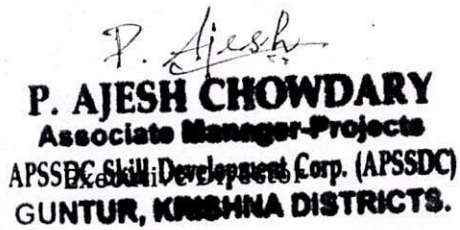 P. Ajesh
P. AJESH CHOWDARY
Associate Manager-Projects
APSSDC Skill Development Corp. (APSSDC)
Executive Director
GUNTUR, KRISHNA DISTRICTS.